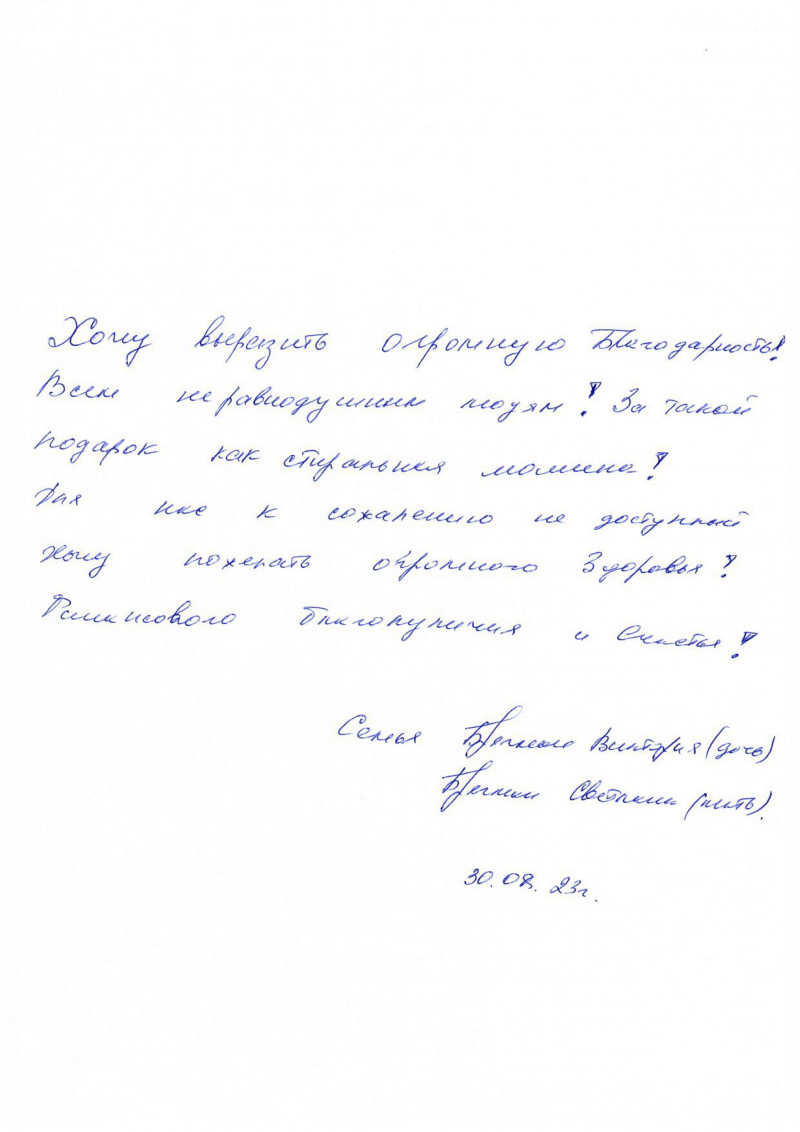 Хочу выразить огромную Благодарность!
Всем неравнодушным людям! За такой
подарок как стиральная машина!
Для нас к сожалению не доступный
Хочу пожелать огромного Здоровья!
Финансового благополучия и Счастья!
Семья Виктория (дочь)
Светлана (мать).
30.08.23г.